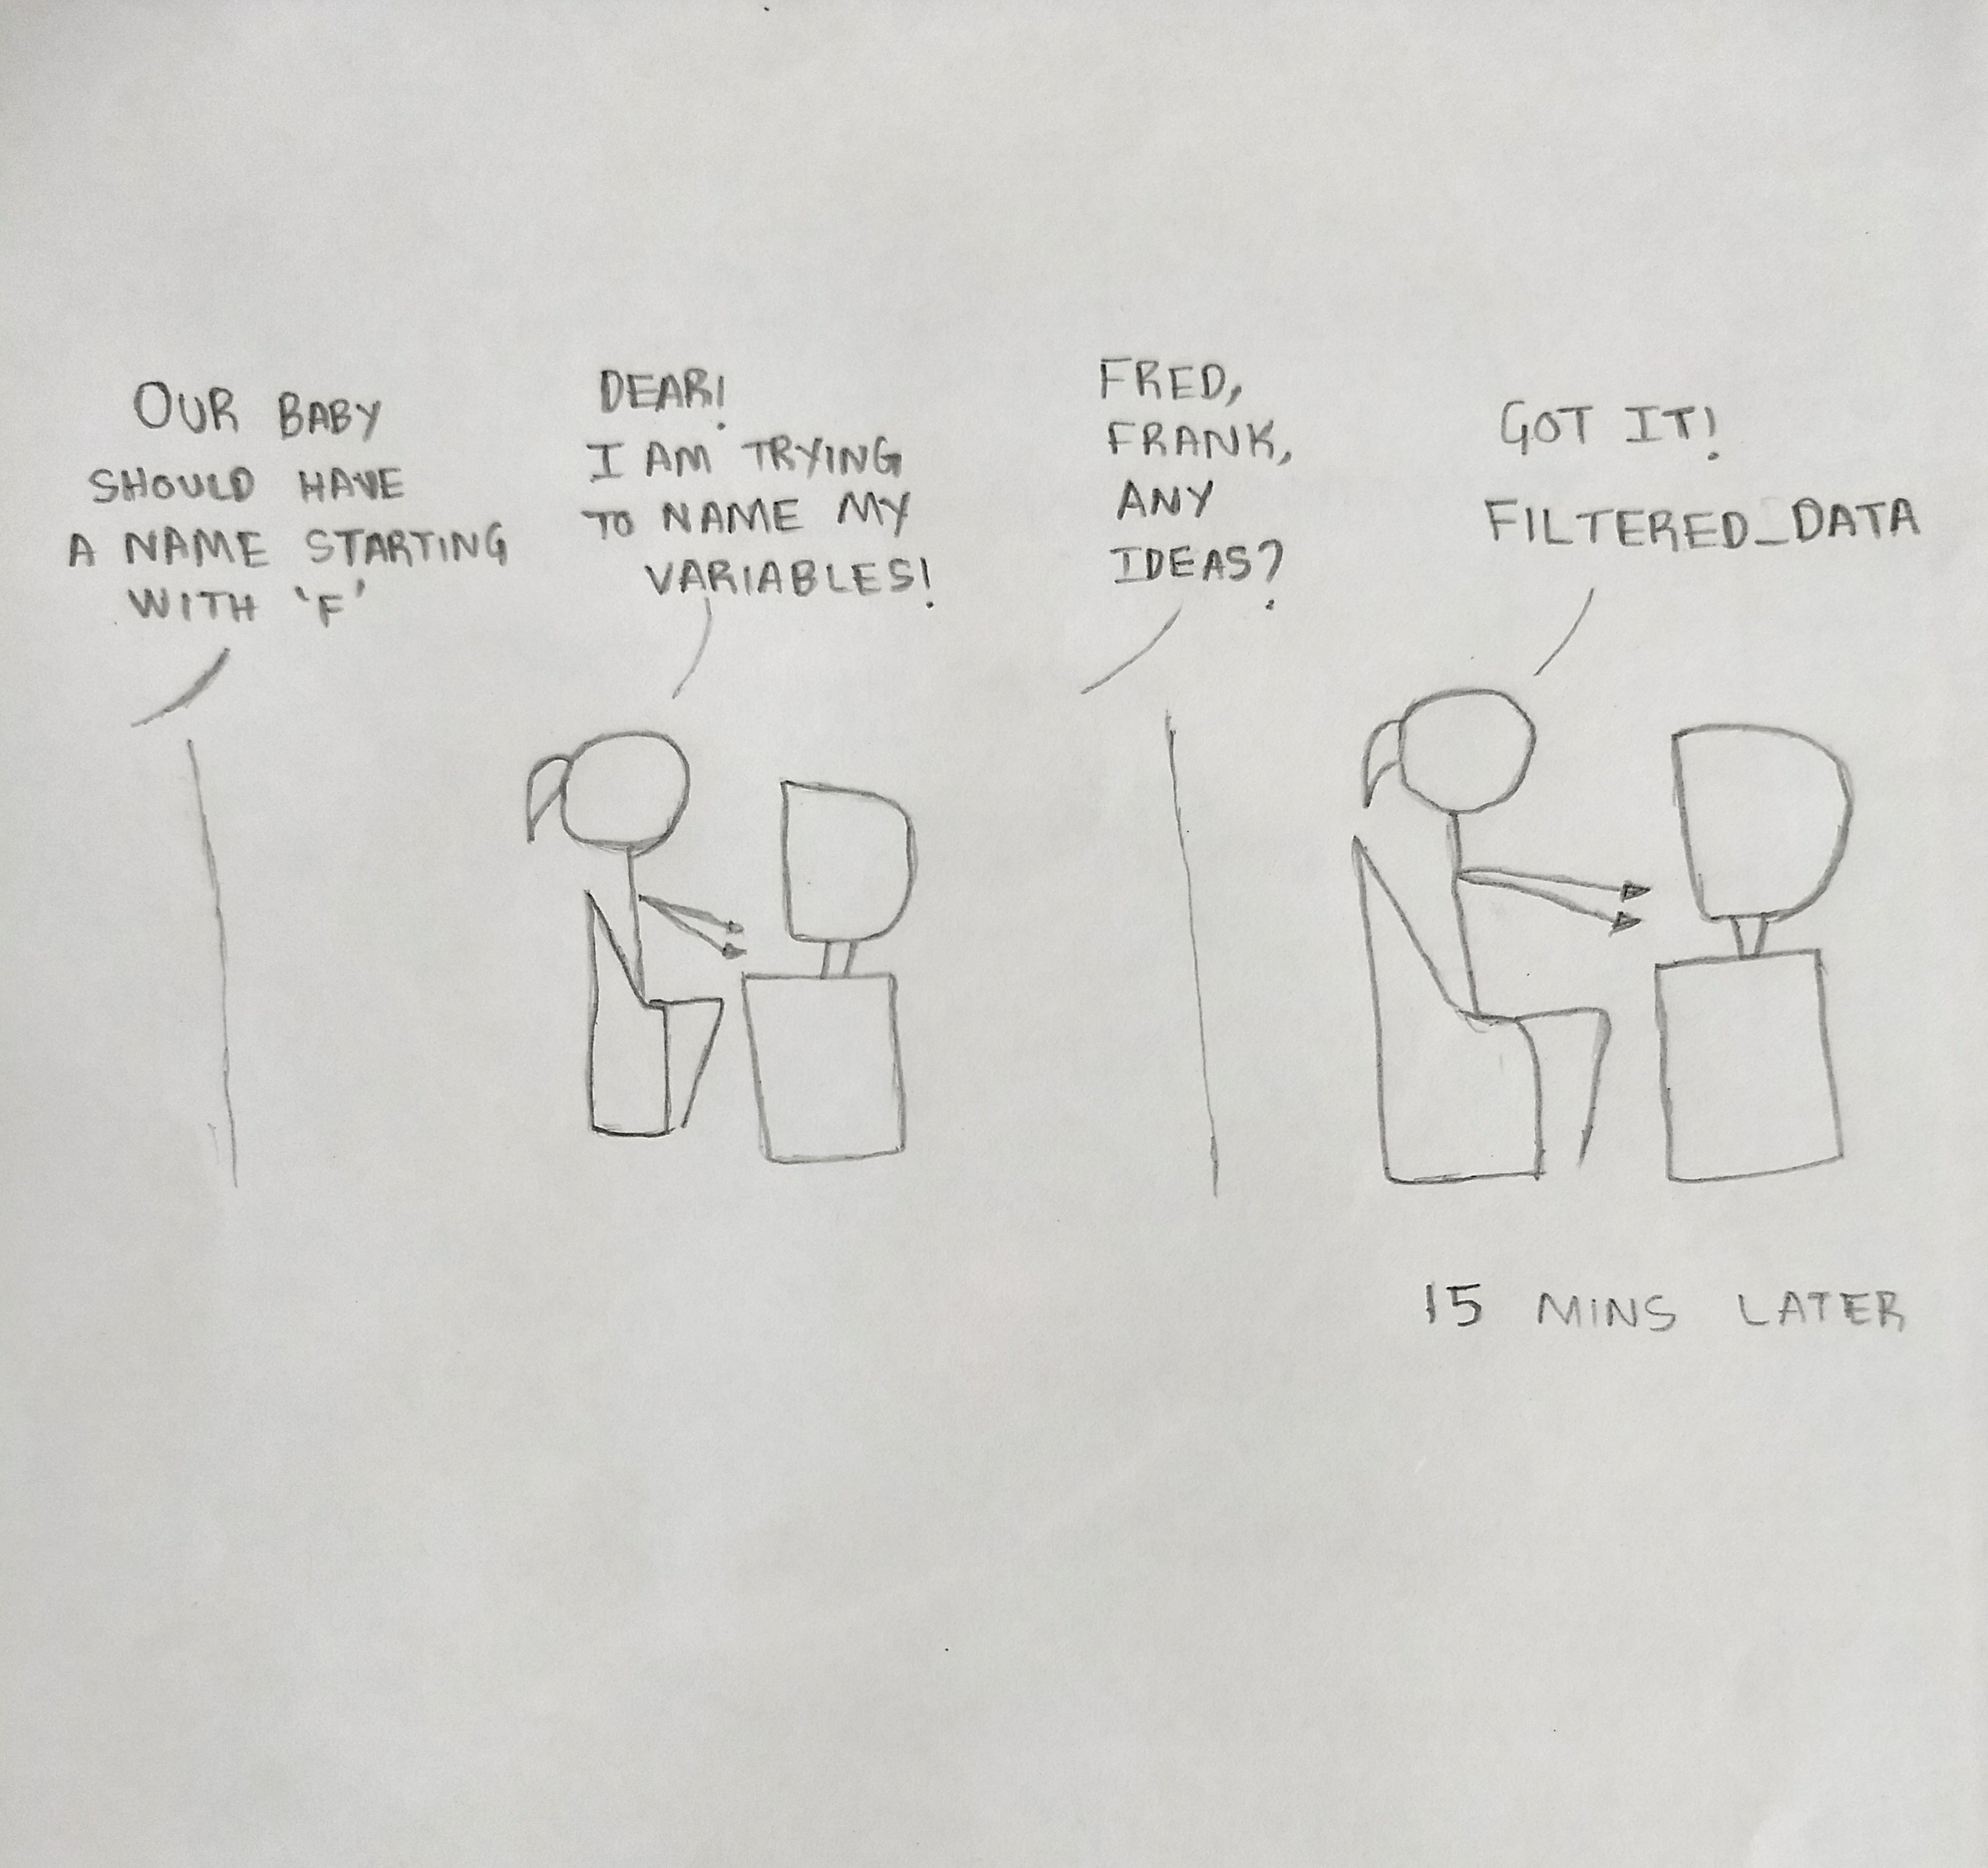 OUR BABY
SHOULD HAVE
A NAME STARTING
WITH 'F'
DEAR!
I AM TRYING
TO NAME MY
VARIABLES!
FRED,
FRANK,
ANY
IDEAS?
GOT IT!
FILTERED_DATA
15 MINS LATER